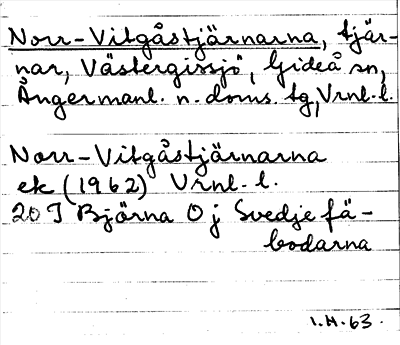 Norr-Vitgåstjärnarna, tjär-
nar, Västergissjö, Gideå sn,
Ångermanl. n. doms. tg, Vrnl. l.
Norr-Vitgåstjärnarna
ek (1962) Vrnl. l.
20 I Björna O j Svedje fä-
bodarna
1.H.63.